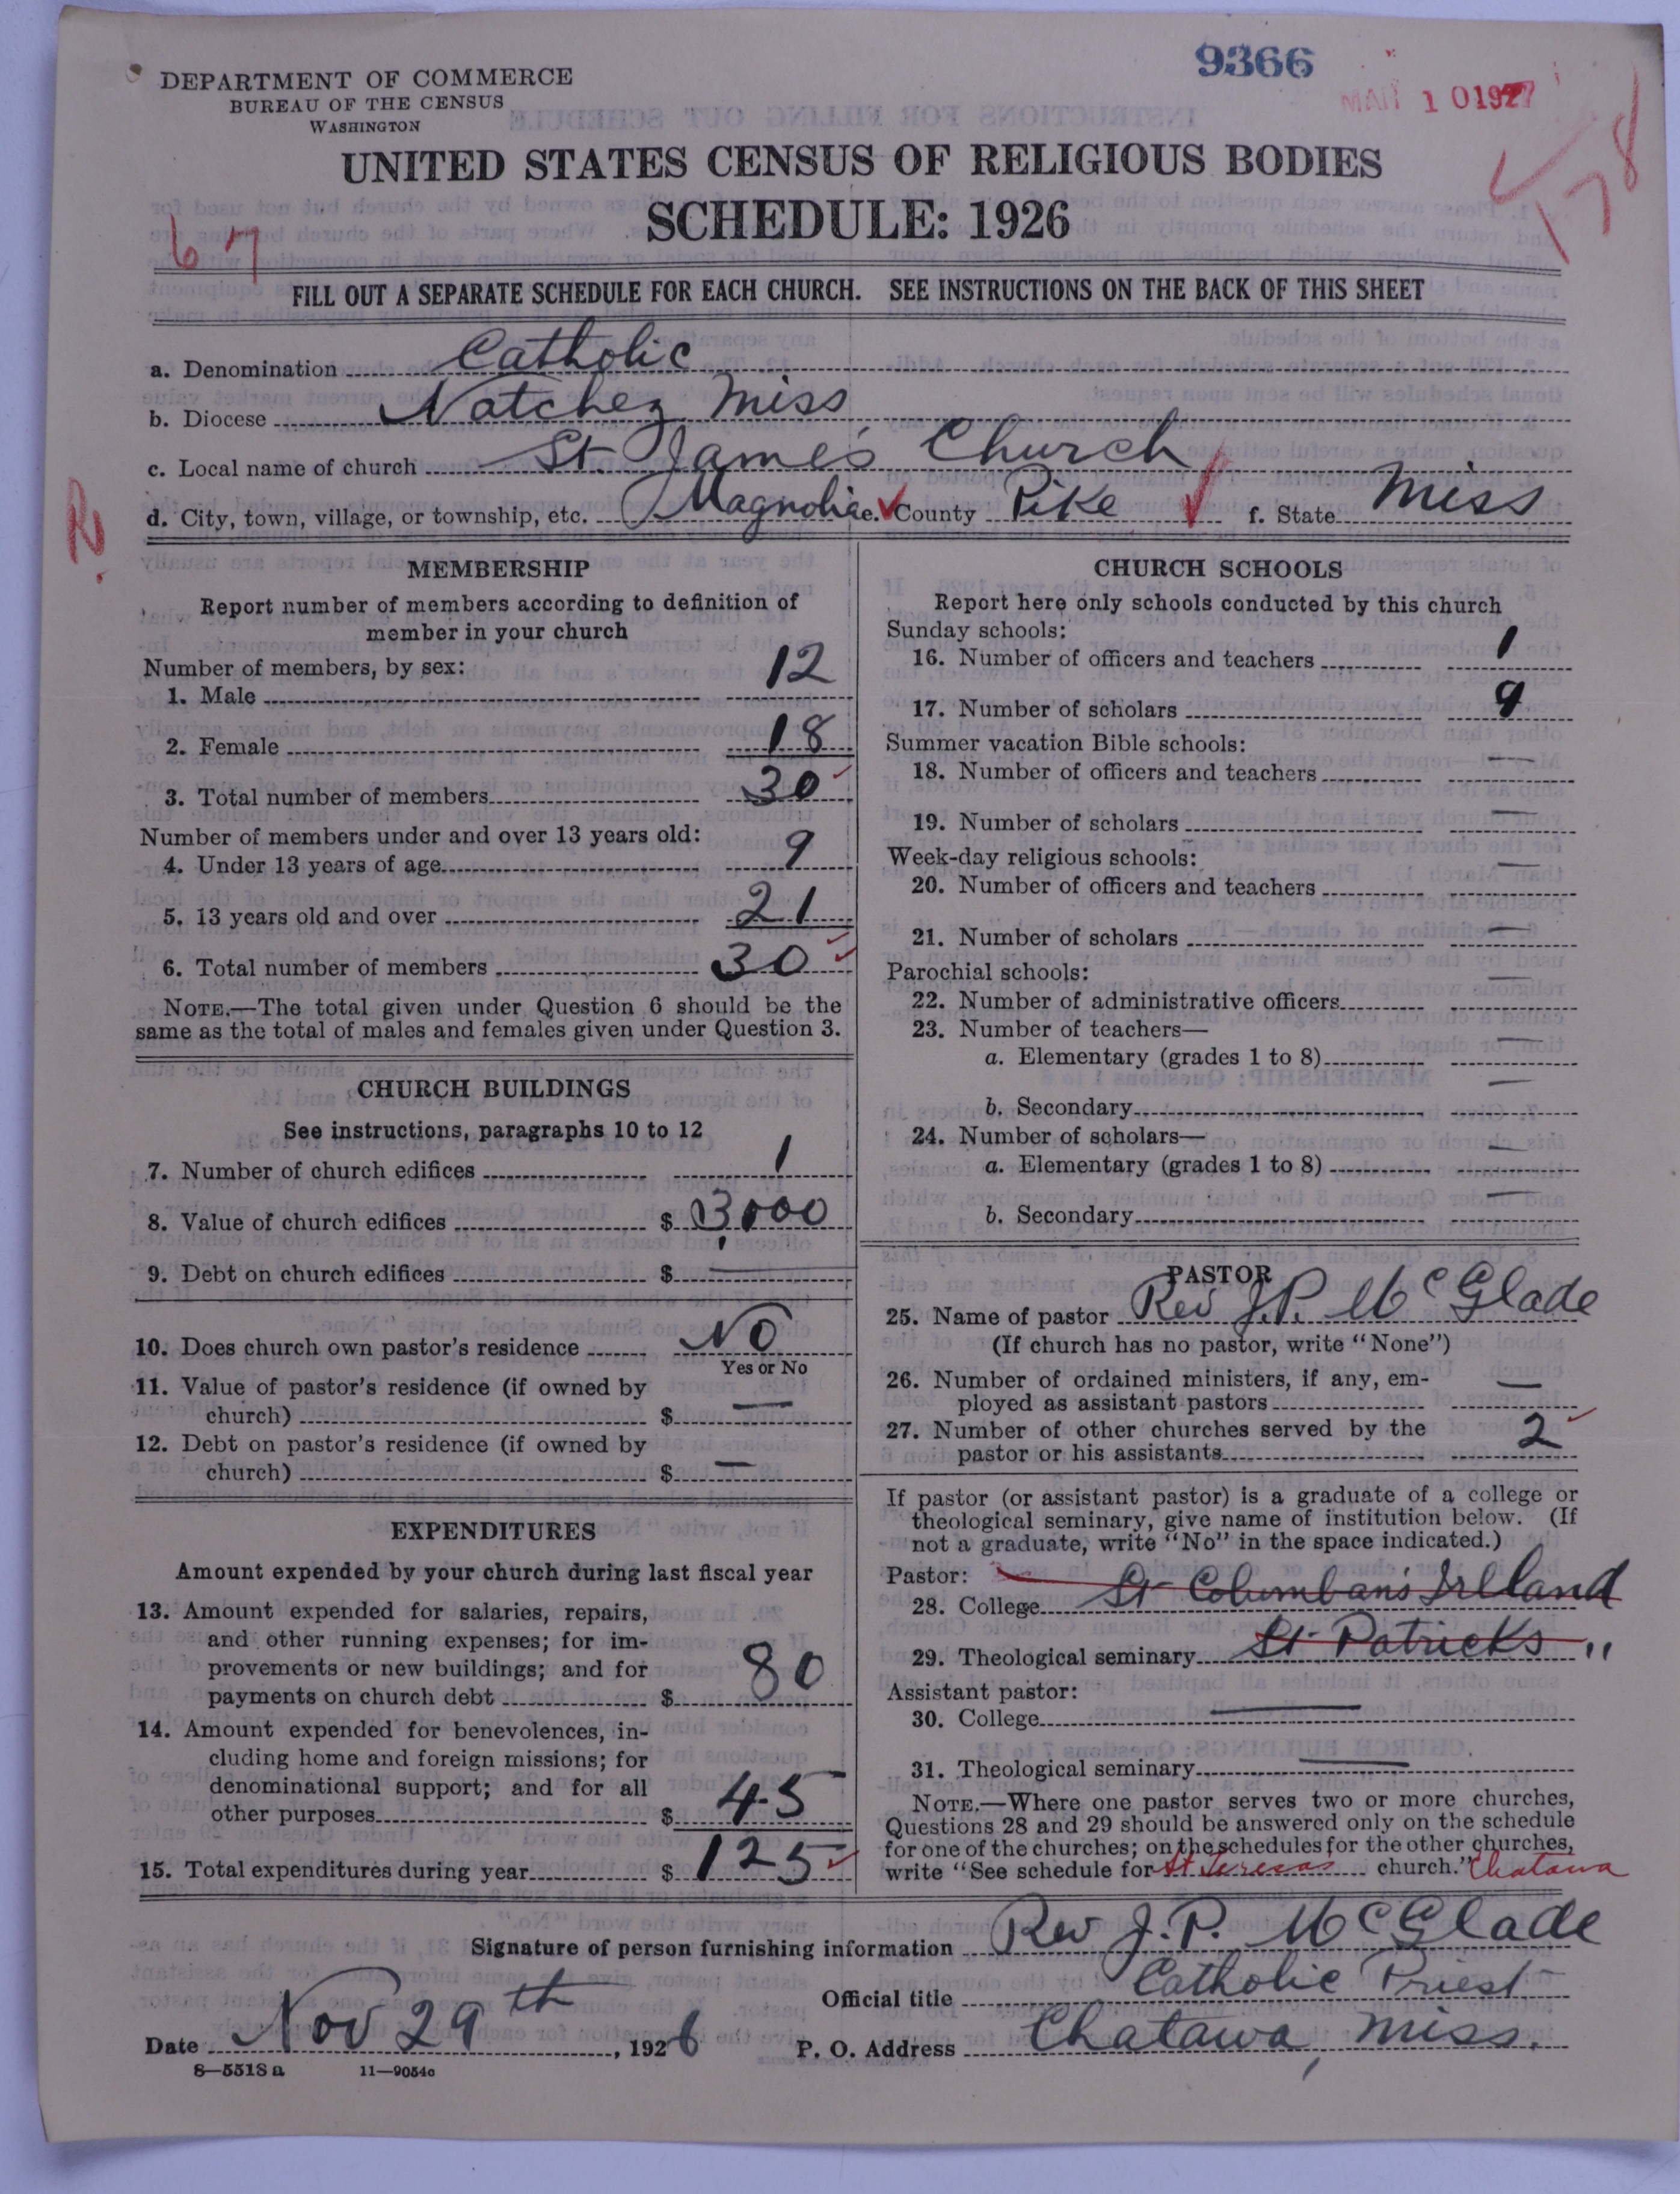 9366
DEPARTMENT OF COMMERCE
BUREAU OF THE CENSUS
WASHINGTON
MAR 10 1927
178
UNITED STATES CENSUS OF RELIGIOUS BODIES
SCHEDULE: 1926
67
FILL OUT A SEPARATE SCHEDULE FOR EACH CHURCH. SEE INSTRUCTIONS ON THE BACK OF THIS SHEET
a. Denomination Catholic
b. Diocese Natchez Miss
c. Local name of church St James' Church
d. City, town, village, or township, etc. Magnolia e. County Pike f. State Miss
MEMBERSHIP
Report number of members according to definition of
member in your church
Number of members, by sex:
1. Male 12
2. Female 18
3. Total number of members 30
Number of members under and over 13 years old:
4. Under 13 years of age 9
5. 13 years old and over 21
6. Total number of members 30
NOTE.—The total given under Question 6 should be the
same as the total of males and females given under Question 3.
CHURCH BUILDINGS
See instructions, paragraphs 10 to 12
7. Number of church edifices 1
8. Value of church edifices $ 3,000
9. Debt on church edifices $ —
10. Does church own pastor's residence No
Yes or No
11. Value of pastor's residence (if owned by
church) $ —
12. Debt on pastor's residence (if owned by
church) $ —
EXPENDITURES
Amount expended by your church during last fiscal year
13. Amount expended for salaries, repairs,
and other running expenses; for im-
provements or new buildings; and for
payments on church debt $ 80
14. Amount expended for benevolences, in-
cluding home and foreign missions; for
denominational support; and for all
other purposes $ 45
15. Total expenditures during year $ 125
CHURCH SCHOOLS
Report here only schools conducted by this church
Sunday schools:
16. Number of officers and teachers 1
17. Number of scholars 9
Summer vacation Bible schools:
18. Number of officers and teachers —
19. Number of scholars —
Week-day religious schools:
20. Number of officers and teachers —
21. Number of scholars —
Parochial schools:
22. Number of administrative officers —
23. Number of teachers—
a. Elementary (grades 1 to 8) —
b. Secondary —
24. Number of scholars—
a. Elementary (grades 1 to 8) —
b. Secondary —
PASTOR
25. Name of pastor Rev J.P. McGlade
(If church has no pastor, write "None")
26. Number of ordained ministers, if any, em-
ployed as assistant pastors —
27. Number of other churches served by the
pastor or his assistants 2
If pastor (or assistant pastor) is a graduate of a college or
theological seminary, give name of institution below. (If
not a graduate, write "No" in the space indicated.)
Pastor:
28. College St Columban's Ireland
29. Theological seminary St Patricks "
Assistant pastor:
30. College —
31. Theological seminary —
NOTE.—Where one pastor serves two or more churches,
Questions 28 and 29 should be answered only on the schedule
for one of the churches; on the schedules for the other churches,
write "See schedule for St Teresas church." Chatawa
Signature of person furnishing information Rev J.P. McGlade
Official title Catholic Priest
Date Nov 29th, 1926 P. O. Address Chatawa, Miss.
8—5518a 11—9054c